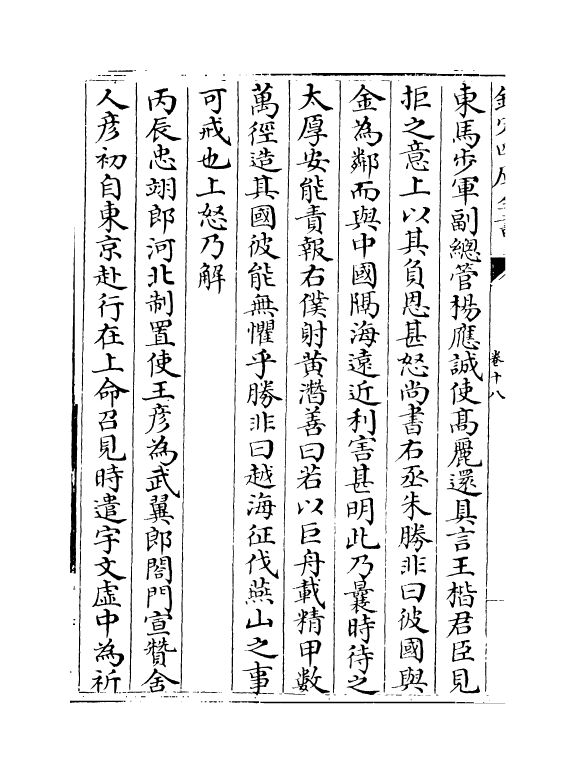 欽定四庫全書
卷十八
東馬步軍副總管楊應誠使髙麗還具言王楷君臣見
拒之意上以其負恩甚怒尚書右丞朱勝非曰彼國與
金為鄰而與中國隔海逺近利害甚明此乃曩時待之
太厚安能責報右僕射黄潛善曰若以巨舟載精甲數
萬徑造其國彼能無懼乎勝非曰越海征伐燕山之事
可戒也上怒乃解
丙辰忠翊郎河北制置使王彦為武翼郎閤門宣贊舍
人彦初自東京赴行在上命召見時遣宇文虚中為祈